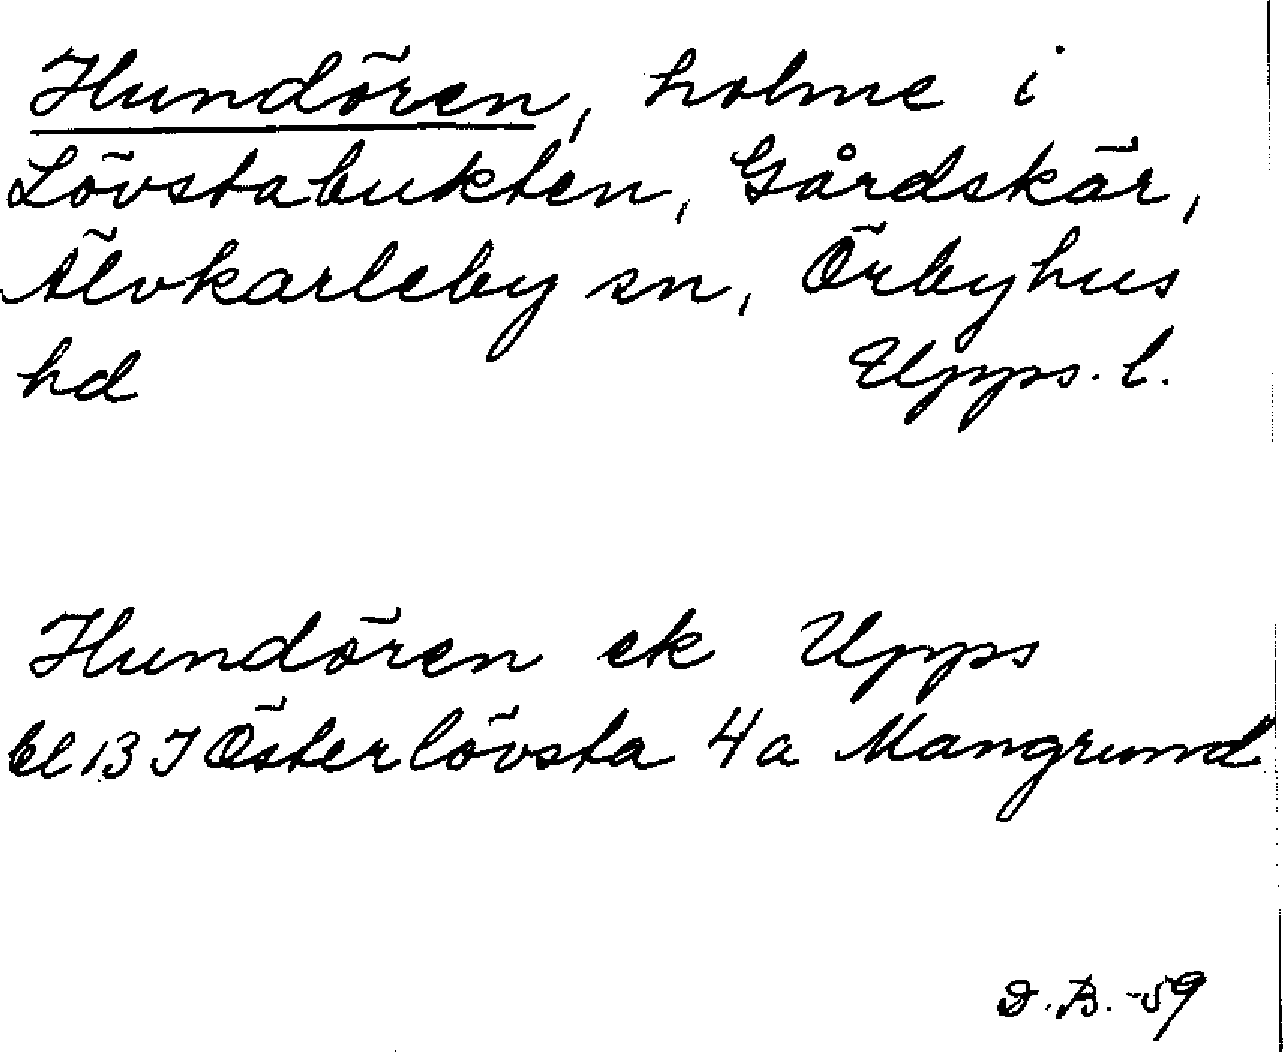 Hundören, holme i
Lövstabukten, Gårdskär,
Älvkarleby sn, Örbyhus
hd Upps. l.
Hundören ek Upps
bl 13 I Österlövsta 4a Mangrund
D.B. -59